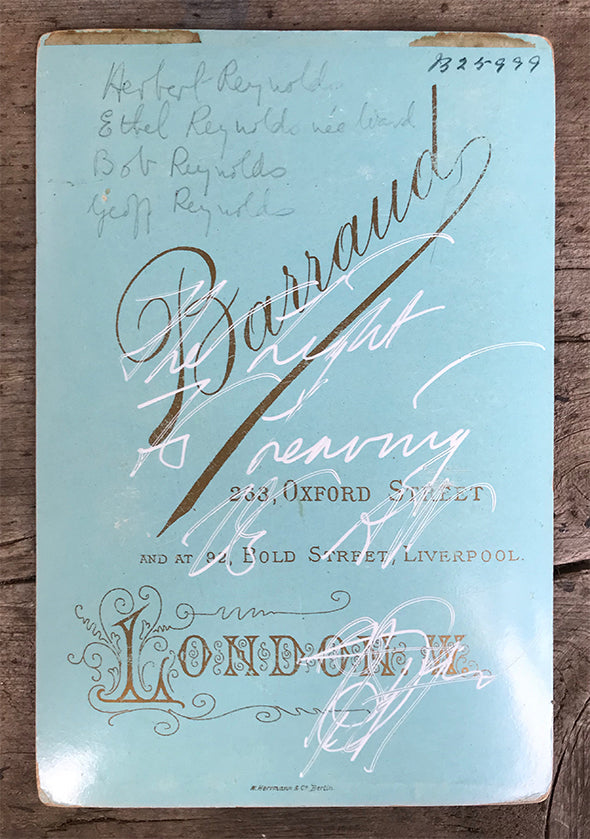 B25999
Herbert Reynolds
Ethel Reynolds née Ward
Bob Reynolds
Geoff Reynolds
Barraud
The Light
Is Leaving
Us
263, OXFORD STREET
AND AT 92, BOLD STREET, LIVERPOOL.
LONDON. W.
W. Herrmann & Co Berlin.